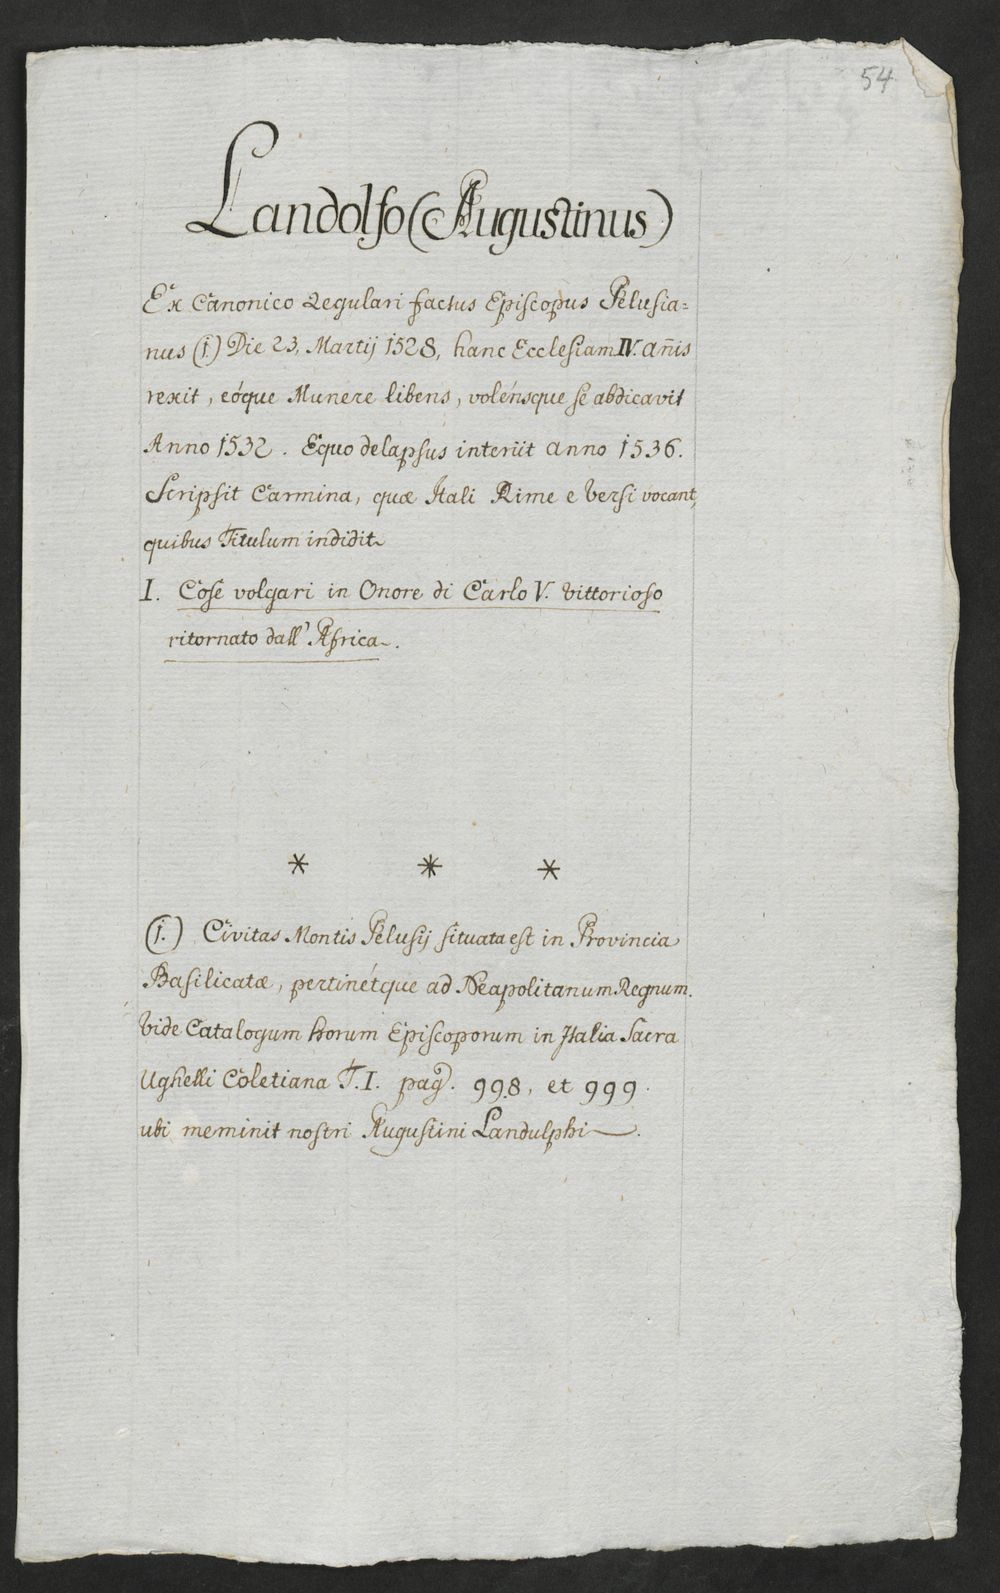 54
Landolfo (Augustinus)
Ex Canonico Regulari factus Episcopus Pelusia=
nus (1.) Die 23. Martij 1528, hanc Ecclesiam IV. añis
rexit, eóque Munere libens, volénsque se abdicavit
Anno 1532. Equo delapsus interiit anno 1536.
Scripsit Carmina, quæ Itali Rime e Versi vocant,
quibus Titulum indidit
I. Cose volgari in Onore di Carlo V. Vittorioso
ritornato dall' Africa.
* * *
(1.) Civitas Montis Pelusij situata est in Provincia
Basilicatæ, pertinétque ad Neapolitanum Regnum.
Vide Catalogum horum Episcoporum in Italia Sacra
Ughelli Coletiana T. I. pag. 998, et 999.
ubi meminit nostri Augustini Landulphi.